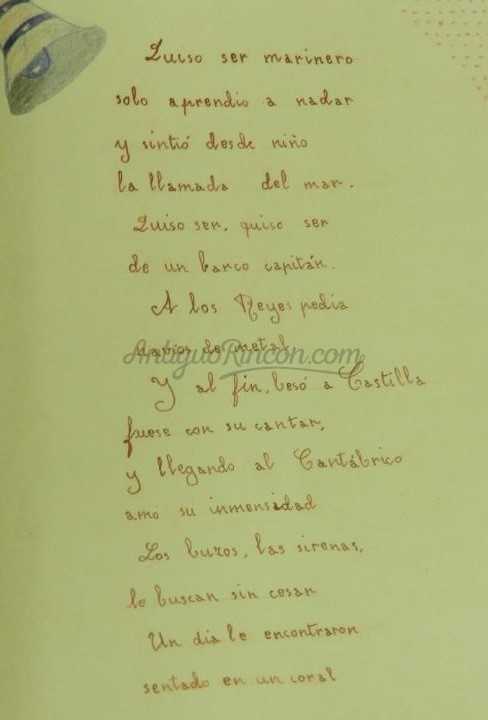 Quiso ser marinero
solo aprendio a nadar
y sintió desde niño
la llamada del mar.
Quiso ser, quiso ser
de un barco capitán.
A los Reyes pedia
navios de metal
AntiguoRincon.com
Y al fin, besó a Castilla
fuese con su cantar,
y llegando al Cantábrico
amo su inmensidad
Los buzos, las sirenas,
le buscan sin cesar
Un dia le encontraron
sentado en un coral